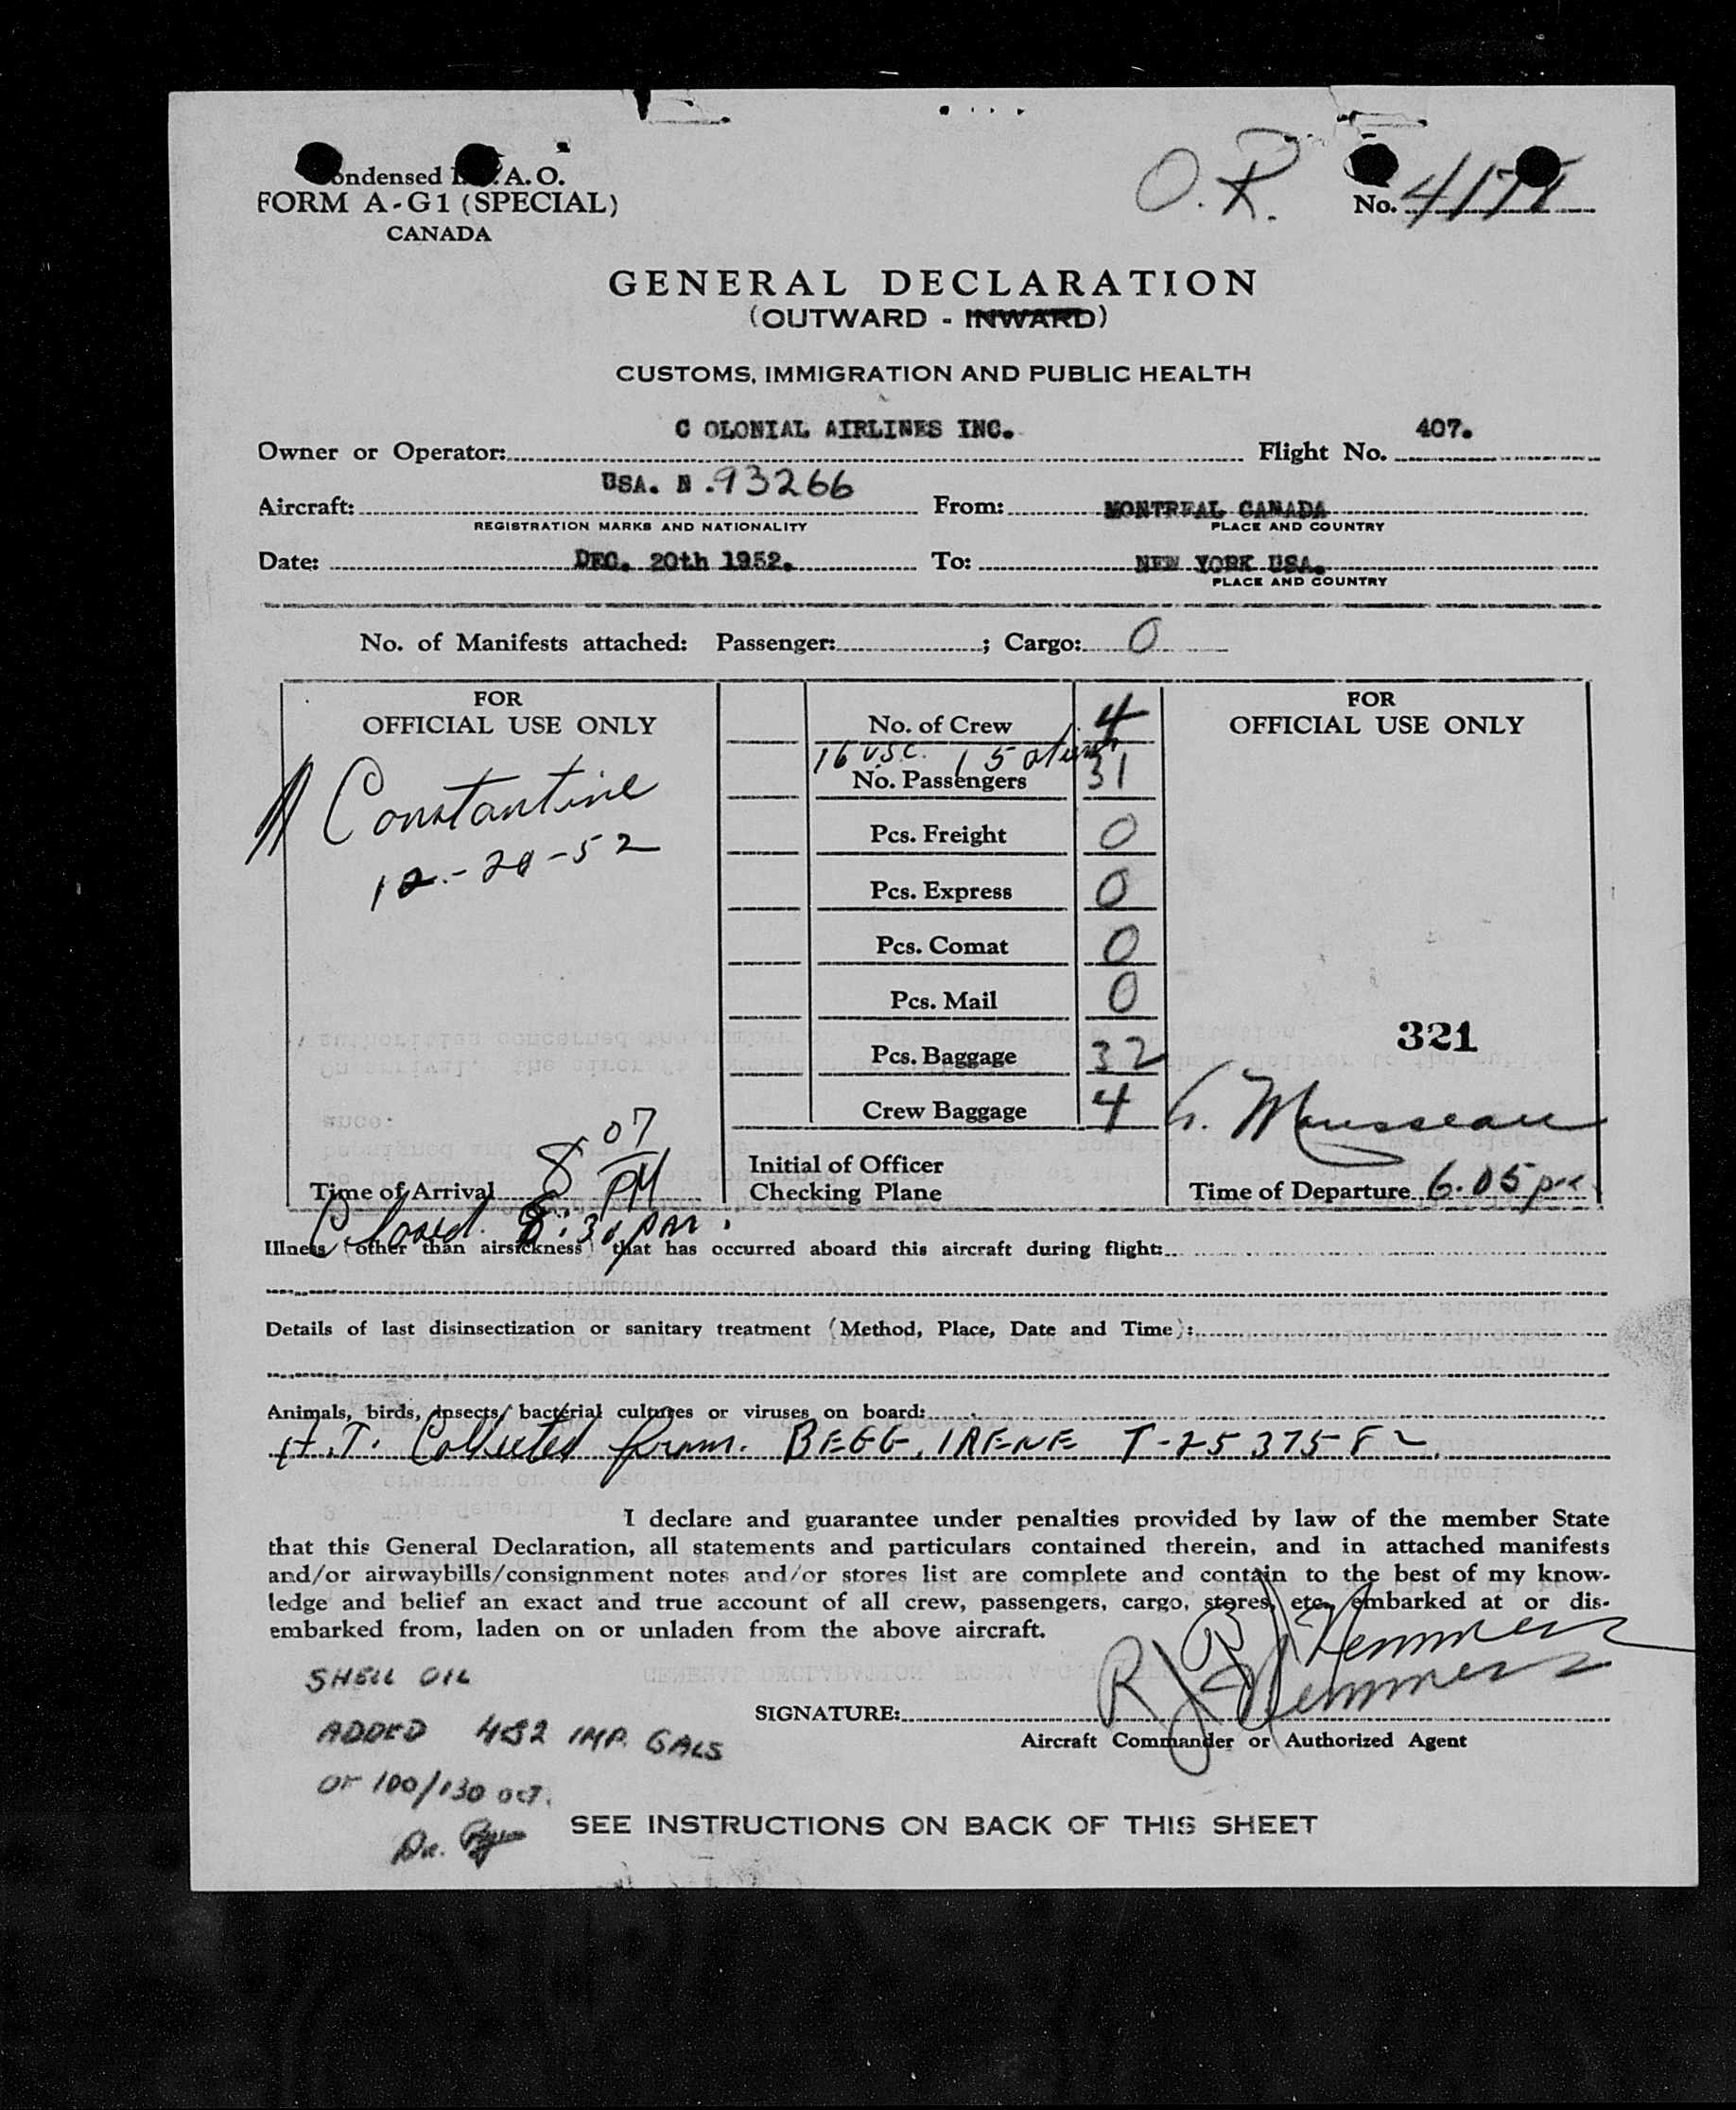 Condensed I.C.A.O.
FORM A-G1 (SPECIAL)
CANADA
O.R.
No.
GENERAL DECLARATION
(OUTWARD - INWARD)
CUSTOMS, IMMIGRATION AND PUBLIC HEALTH
Owner or Operator: C OLONIAL AIRLINES INC. Flight No. 407.
Aircraft: USA. N .93266 From: MONTREAL CANADA
REGISTRATION MARKS AND NATIONALITY PLACE AND COUNTRY
Date: DEC. 20th 1952. To: NEW YORK USA.
PLACE AND COUNTRY
No. of Manifests attached: Passenger: ; Cargo: 0
FOR
OFFICIAL USE ONLY
Constantine
12-20-52
Time of Arrival 8 07 PM
Closed 8:30 pm.
No. of Crew 4
16 U.S.C. 15 aliens
No. Passengers 31
Pcs. Freight 0
Pcs. Express 0
Pcs. Comat 0
Pcs. Mail 0
Pcs. Baggage 32
Crew Baggage 4
Initial of Officer
Checking Plane
FOR
OFFICIAL USE ONLY
321
Mousseau
Time of Departure 6.05 pm
Illness (other than airsickness) that has occurred aboard this aircraft during flight:
Details of last disinsectization or sanitary treatment (Method, Place, Date and Time):
Animals, birds, insects, bacterial cultures or viruses on board:
H.T. Collected from. BEGG, IRENE T-2537582
I declare and guarantee under penalties provided by law of the member State
that this General Declaration, all statements and particulars contained therein, and in attached manifests
and/or airwaybills/consignment notes and/or stores list are complete and contain to the best of my know-
ledge and belief an exact and true account of all crew, passengers, cargo, stores, etc., embarked at or dis-
embarked from, laden on or unladen from the above aircraft.
SHELL OIL
ADDED 482 IMP. GALS
OF 100/130 OCT.
SIGNATURE:
Aircraft Commander or Authorized Agent
SEE INSTRUCTIONS ON BACK OF THIS SHEET